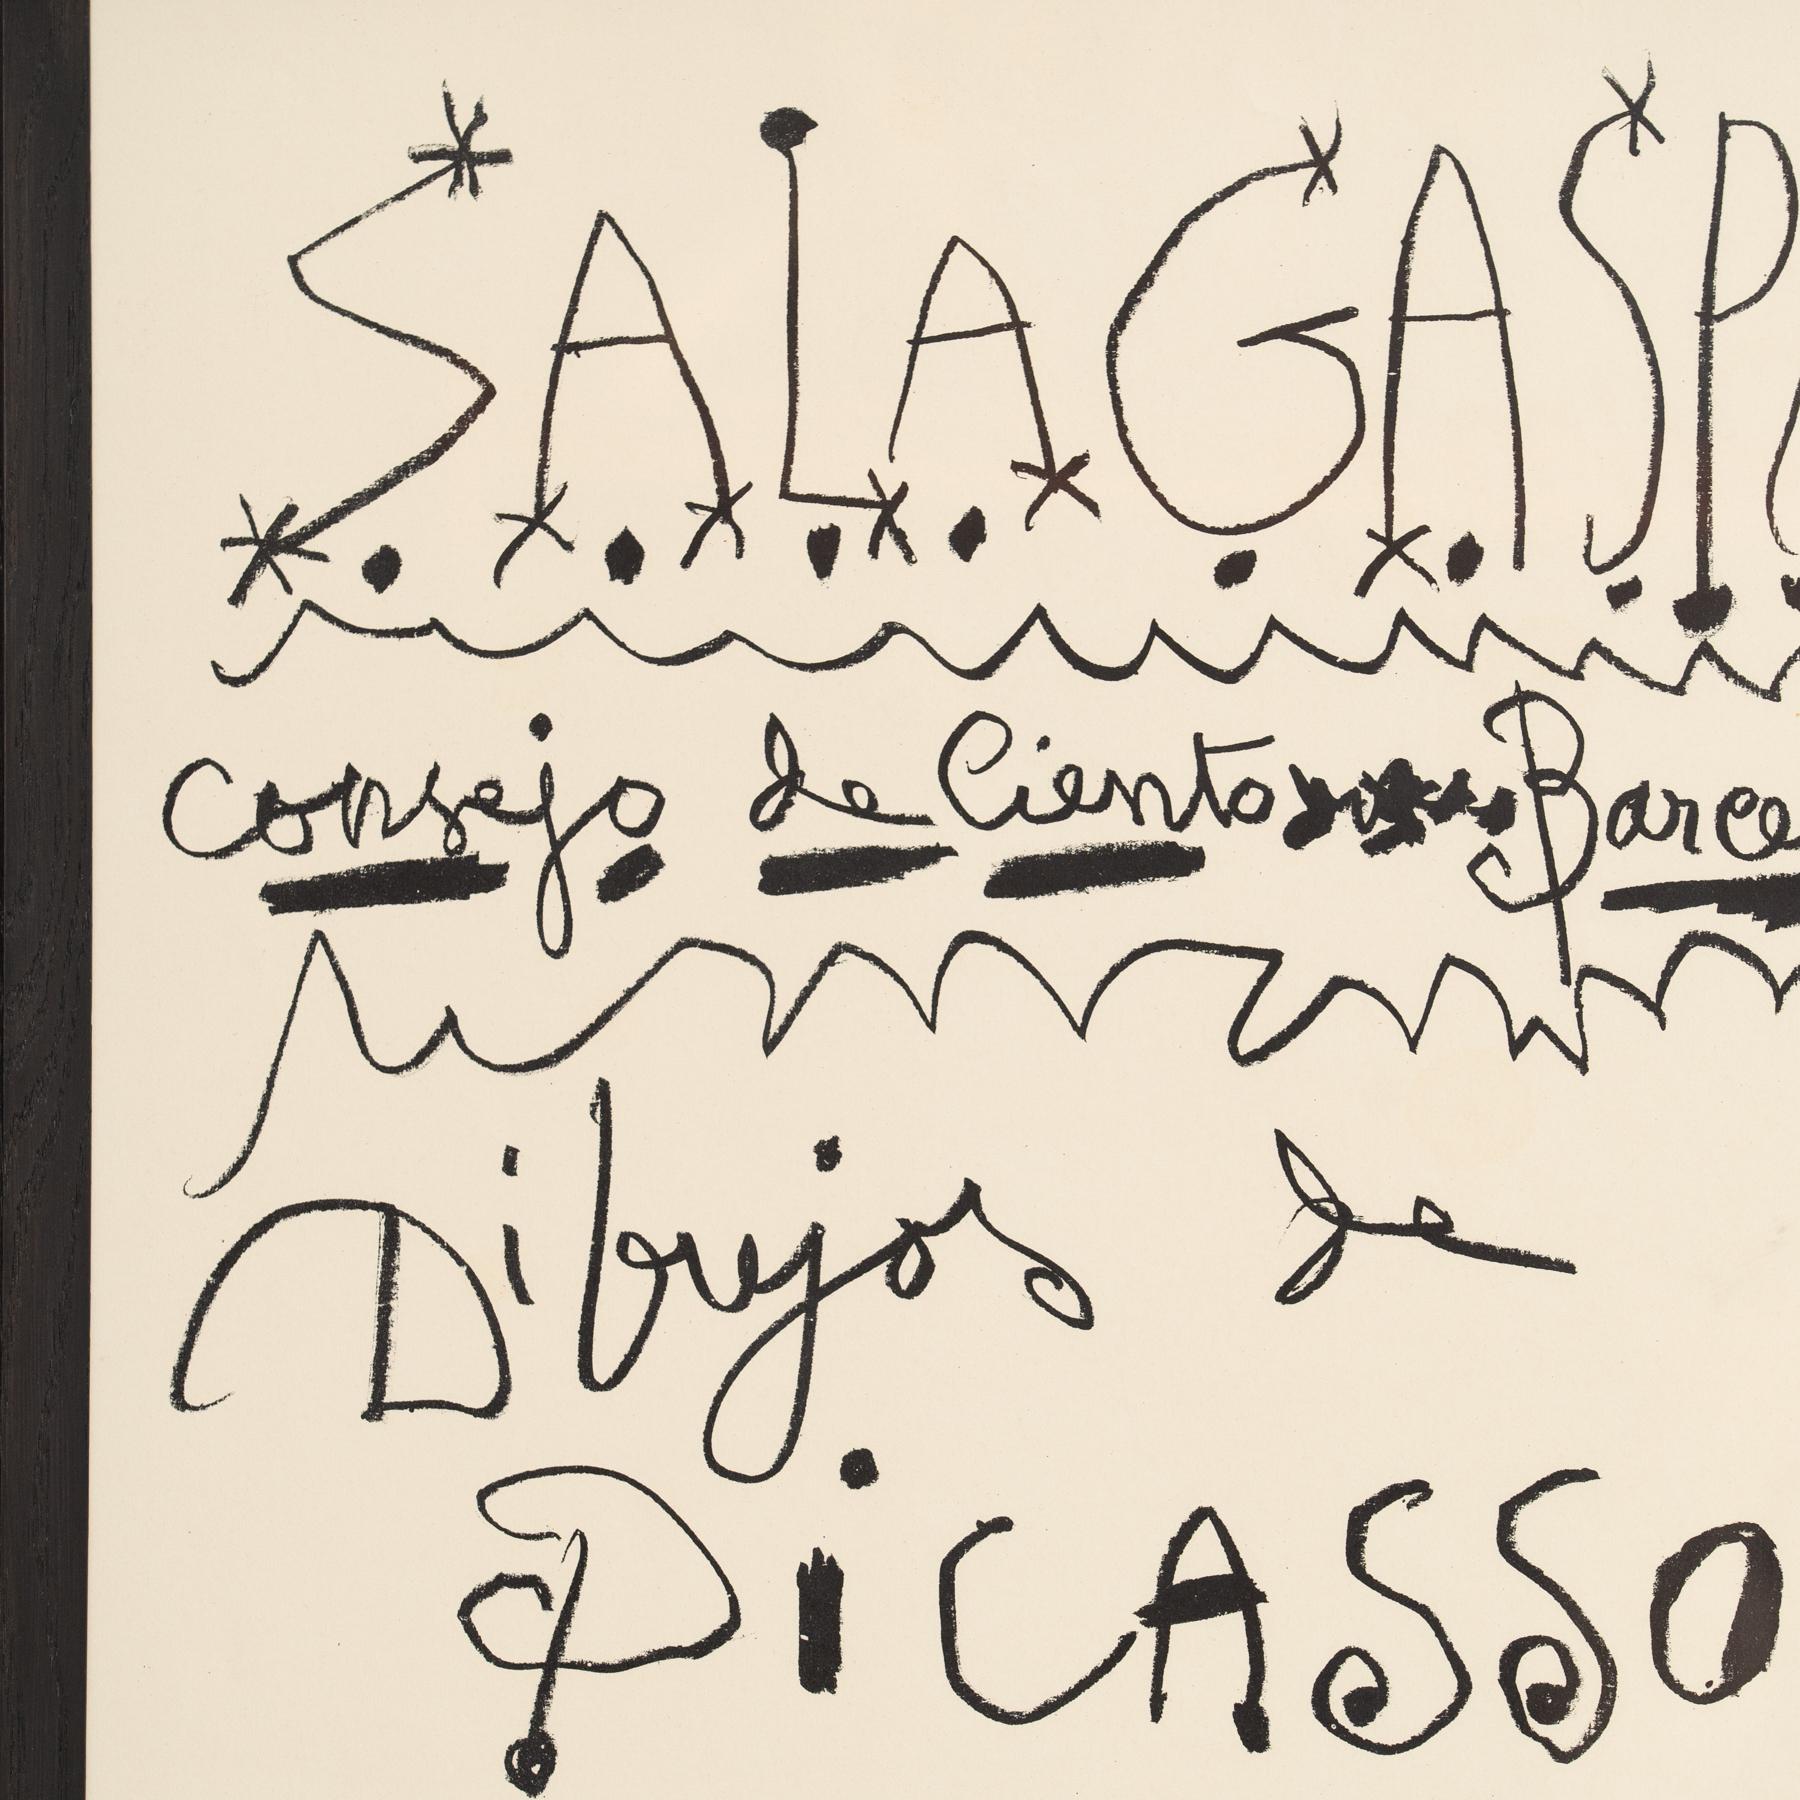 SALA GASP
Consejo de Ciento Barce
Dibujos de
PiCASSO